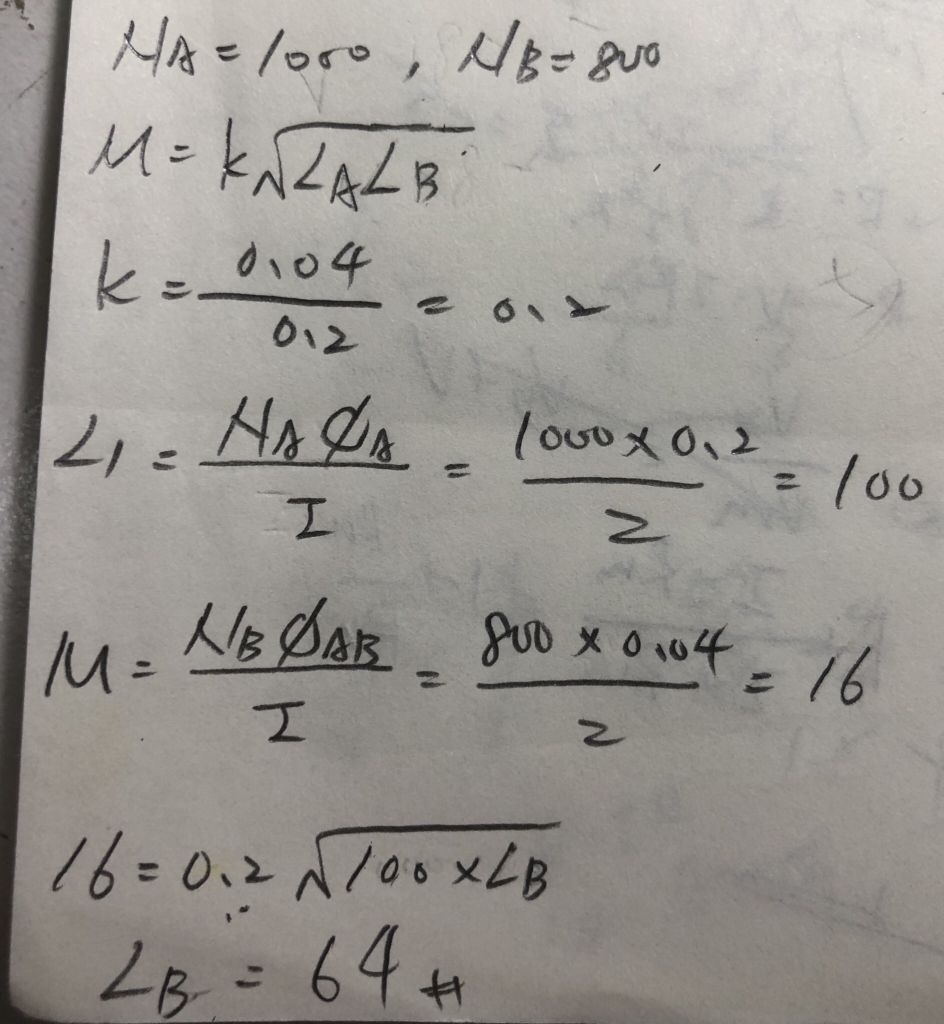 N_A = 1000 , N_B = 800
M = k√(L_A L_B)
k = 0.04 / 0.2 = 0.2
L_1 = N_A Ø_A / I = 1000 × 0.2 / 2 = 100
M = N_B Ø_AB / I = 800 × 0.04 / 2 = 16
16 = 0.2 √(100 × L_B)
L_B = 64 #